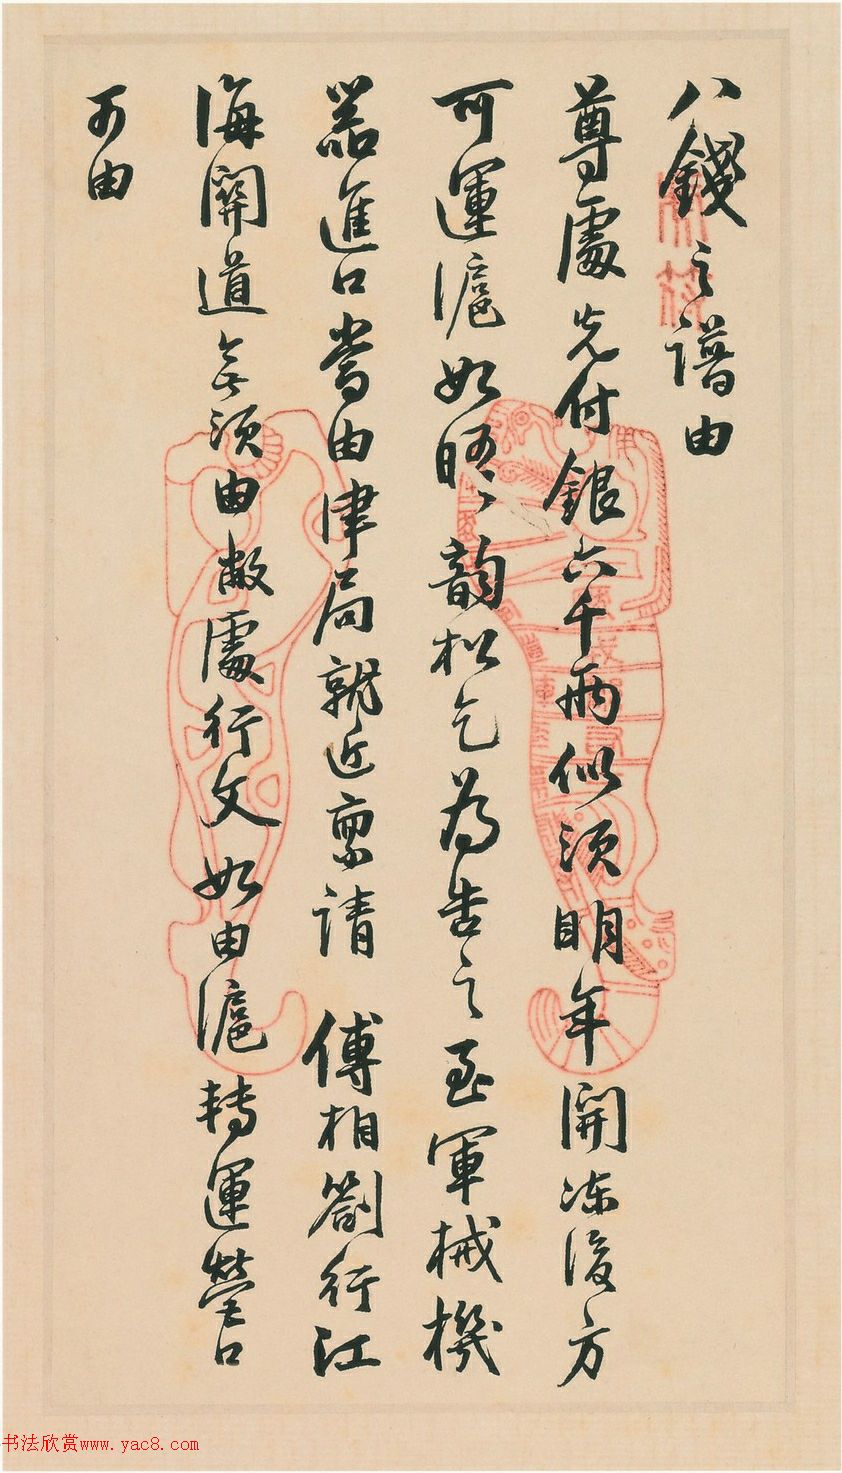 八錢之譜由
尊處先付銀六千兩似須明年開冻後方
可運滬如晤韵松乞為告之至軍械機
器進口當由津局就近稟請 傅相劄行江
海關道無須由敝處行文如由滬轉運營口
可由
书法欣赏www.yac8.com